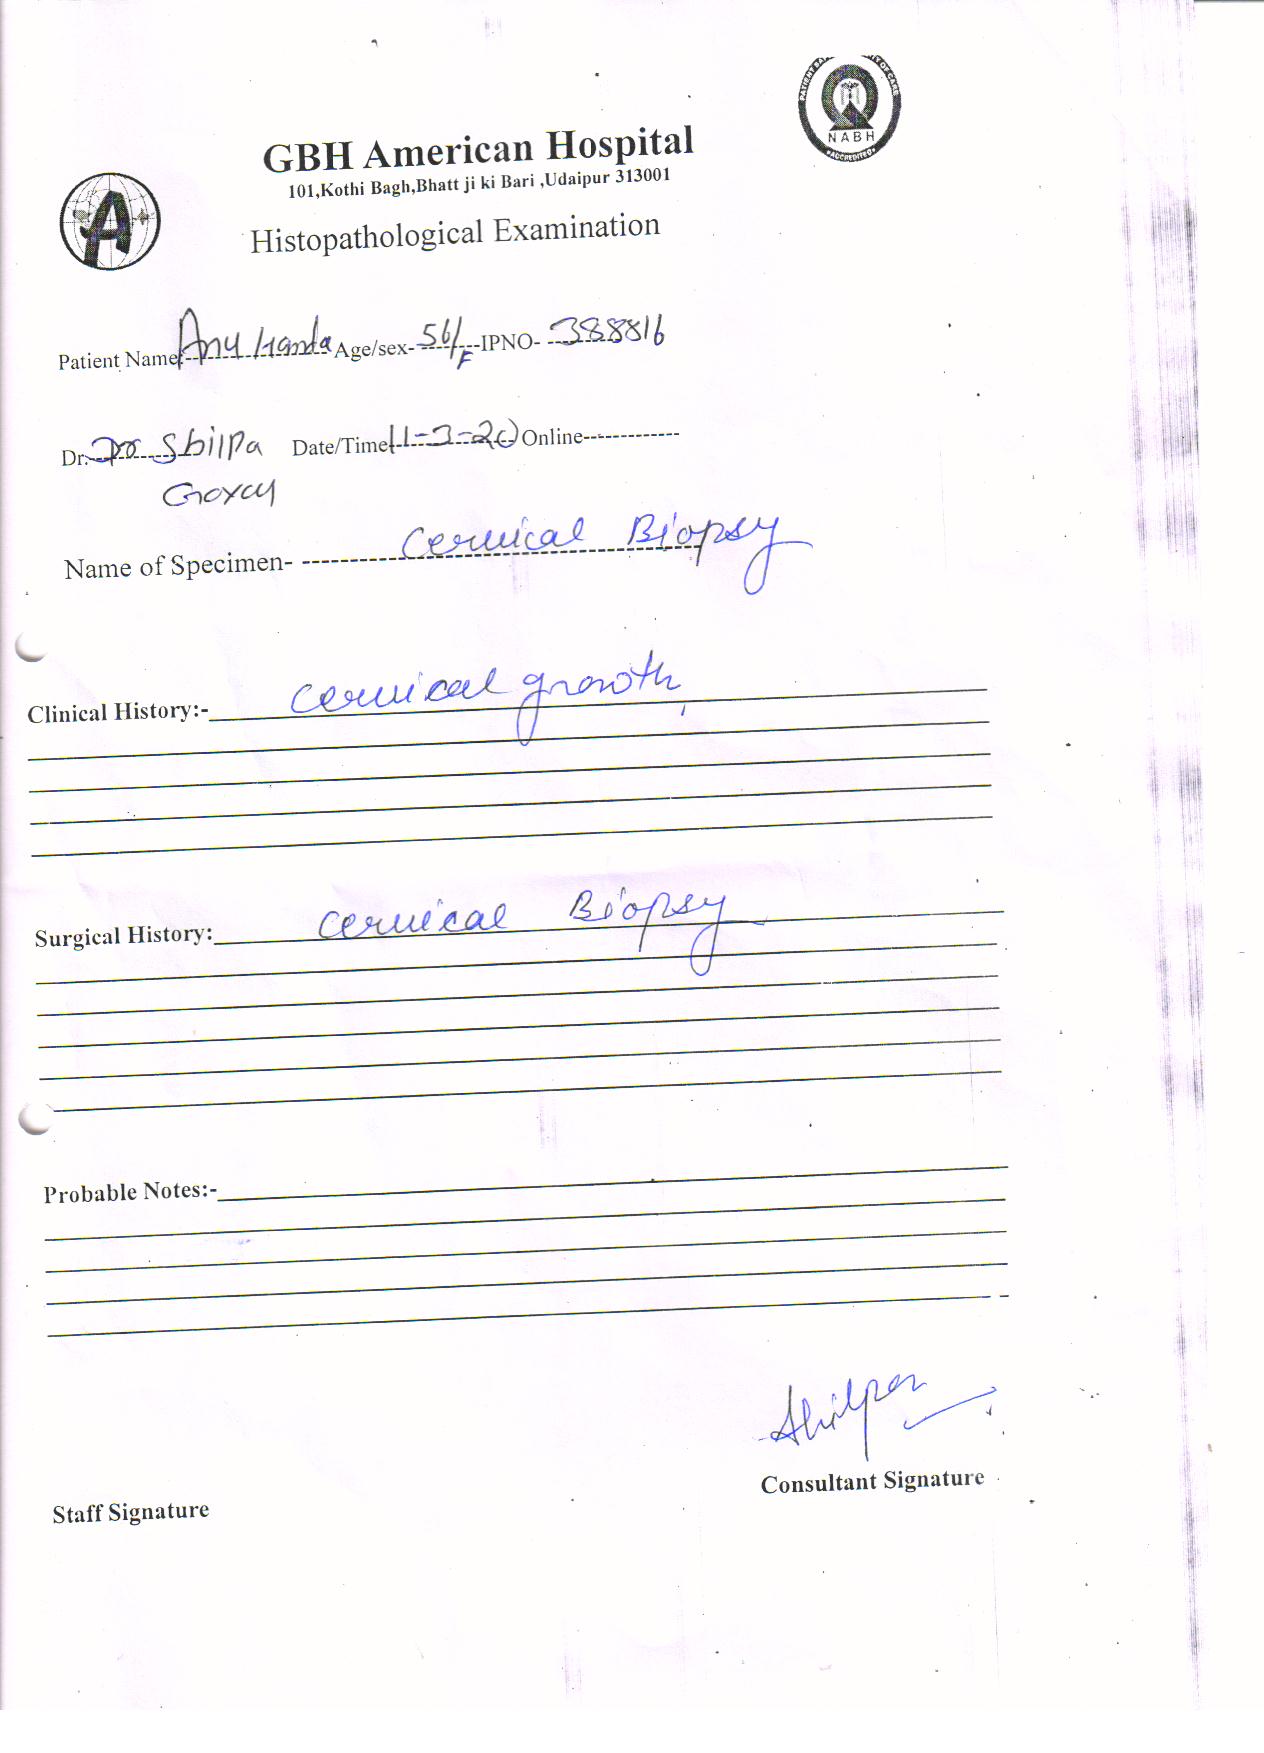 PATIENT SA Y OF CARE
NABH
ACCREDITED
GBH American Hospital
101,Kothi Bagh,Bhatt ji ki Bari ,Udaipur 313001
A
Histopathological Examination
Patient Name:- Anu Handa Age/sex- 56/F IPNO- 388816
Dr. Dr Shilpa Date/Time 11-3-20 Online-
Goyal
Name of Specimen- Cervical Biopsy
Clinical History:- Cervical growth
Surgical History: Cervical Biopsy
Probable Notes:-
Shilpa
Consultant Signature
Staff Signature